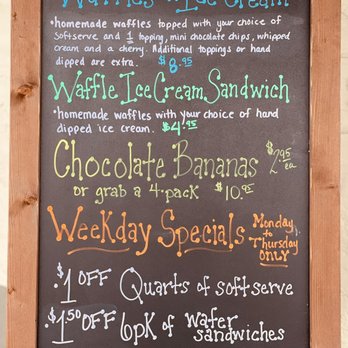 Waffles n Ice Cream
•homemade waffles topped with your choice of
Softserve and 1 topping, mini chocolate chips, whipped
cream and a cherry. Additional toppings or hand
dipped are extra. $8.95
Waffle Ice Cream Sandwich
•homemade waffles with your choice of hand
dipped ice cream. $4.95
Chocolate Bananas $2.95 ea
or grab a 4-pack $10.95
Weekday Specials Monday to Thursday ONLY
$1 OFF Quarts of softserve
$1.50 OFF 6pk of wafer sandwiches